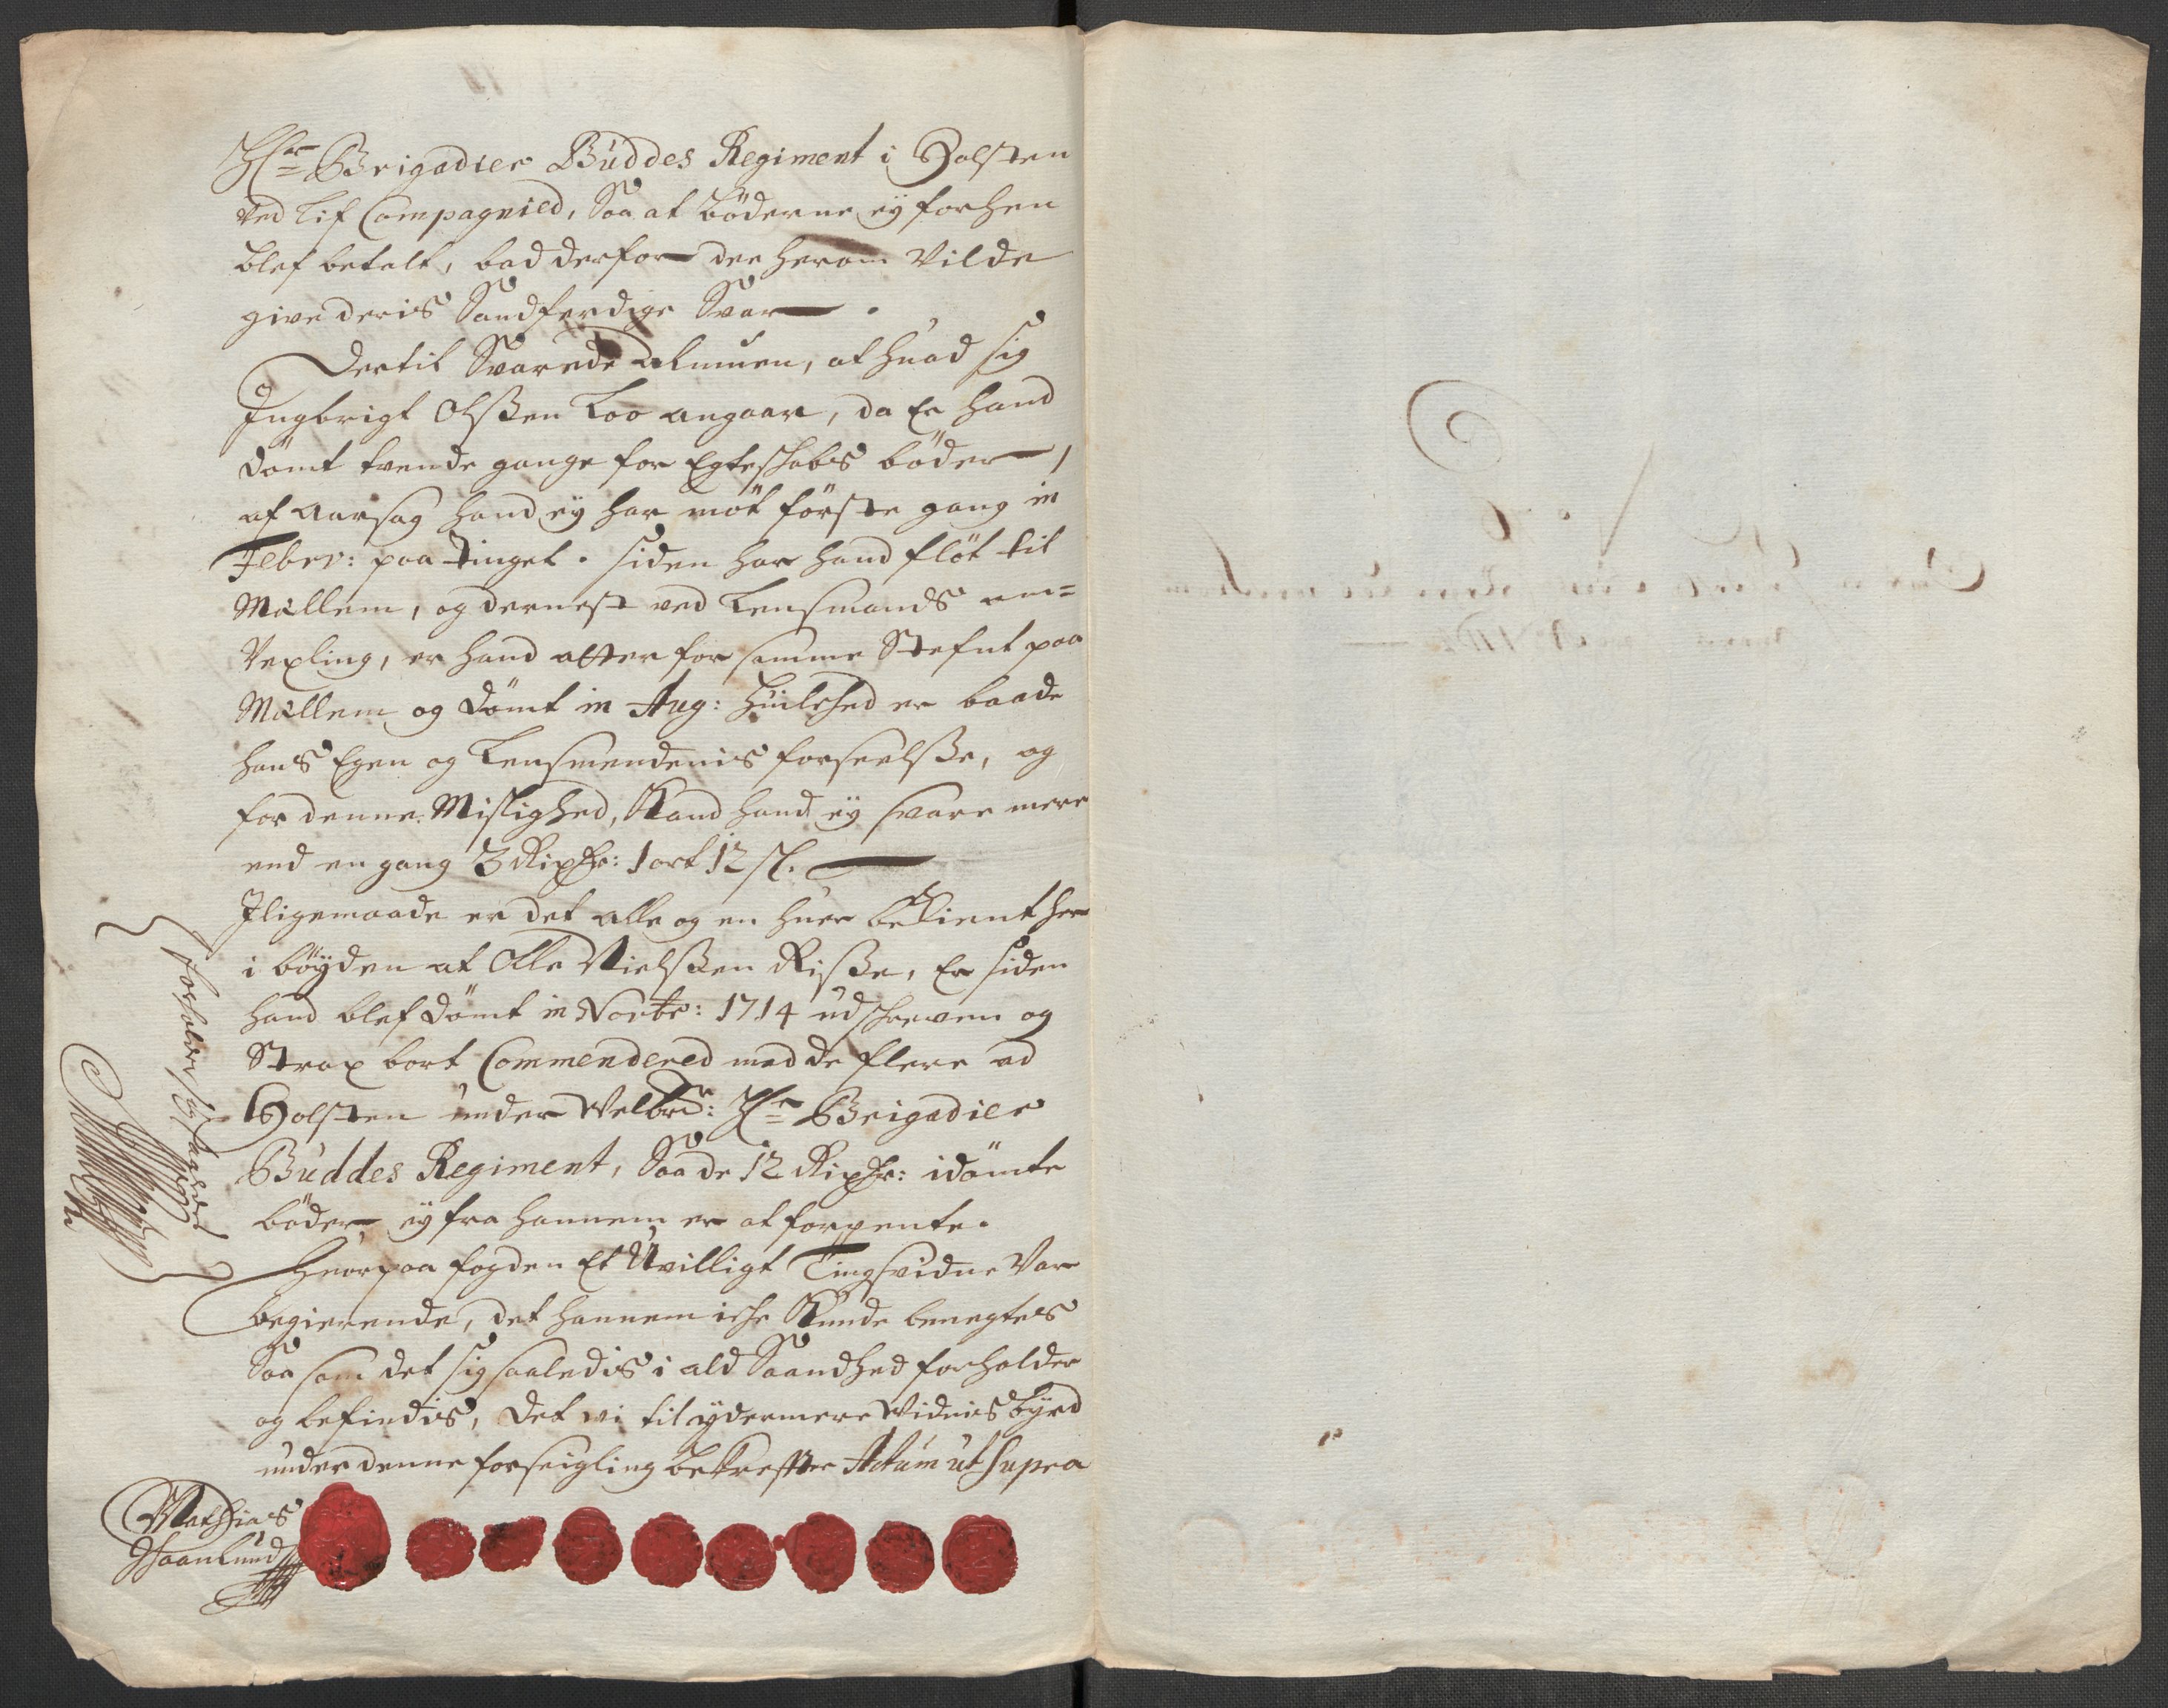 Hr: Brigadier Buddes Regiment i Holsten
ved Lif Compagnied, Saa at böderne ey forhen
blef betalt, bad derfor dee herom Vilde
give deris Sandferdige Svar.
Dertil Svarede Almuen, at huad sig
Ingbrigt Olssen Loo angaar, da Er hand
dömt tvende gange for Egteskabs böder,
af aarsag hand ey har möt förste gang in
Febr: paa Tinget. siden har hand flöt til
Mællem, og dernest ved Lensmands om-
Vexling, er hand atter for samme Stefnt paa
Mællem og dömt in Aug: huilched er baade
hans Egen og Lensmendenis forseelsse, og
for denne Mislighed, Kand hand ey svare mere
end en gang 3 Rixdr: 1 ort 12 s.
Iligemaade er det alle og en huer bekient her
i böyden at Olle Nielssen Risse, Er siden
hand blef dömt in Novbr: 1714 udschreven og
Strax bort Commendered med de flere ad
Holsten under Welbr: Hr Brigadier
Buddes Regiment, Saa de 12 Rixdr: idömte
böder ey fra hannem er at forvente.
Huorpaa fogden Et Uvilligt Tingsvidne Var
begierende, det hannem iche Kunde benegtes
Saa som det sig saaledis i ald Saandhed forholder
og befindis, det vi til ydermere Widnisbyrd
under denne forseigling bekreffter Actum ut supra
Mathias